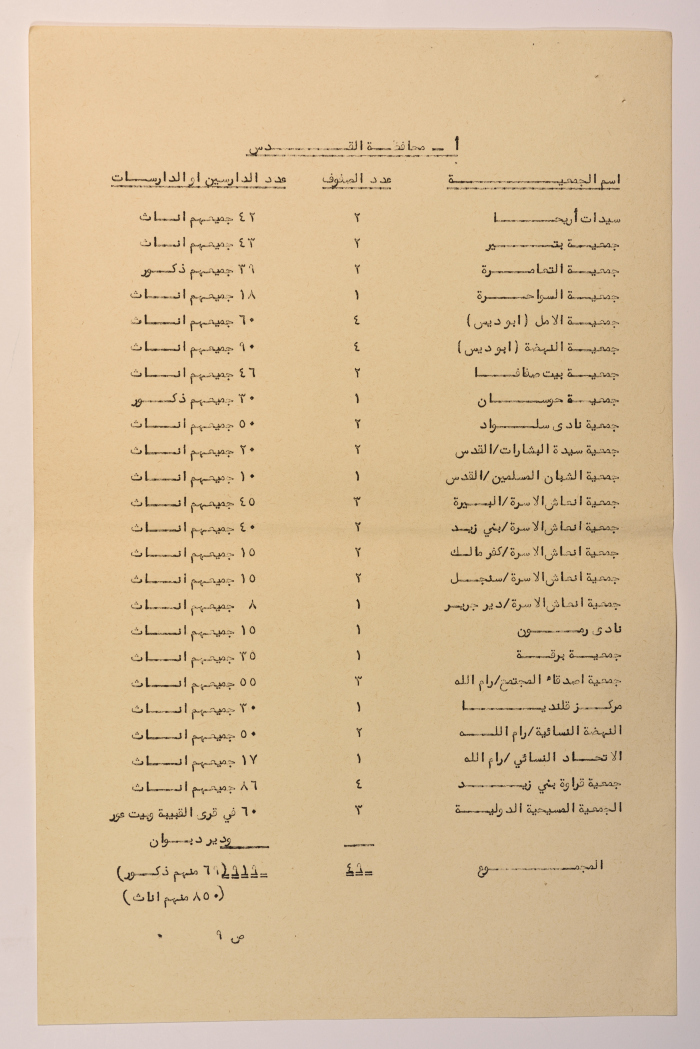 أ - محافظة القدس
اسم الجمعية عدد الصفوف عدد الدارسين او الدارسات
سيدات أريحا ٢ ٤٢ جميعهم اناث
جمعية بتير ٢ ٤٣ جميعهم اناث
جمعية التعامرة ٢ ٣٩ جميعهم ذكور
جمعية السواحرة ١ ١٨ جميعهم اناث
جمعية الامل (ابو ديس) ٤ ٦٠ جميعهم اناث
جمعية النهضة (ابو ديس) ٤ ٩٠ جميعهم اناث
جمعية بيت صفافا ٢ ٤٦ جميعهم اناث
جمعية حوسان ١ ٣٠ جميعهم ذكور
جمعية نادى سلواد ٢ ٥٠ جميعهم اناث
جمعية سيدة البشارات/القدس ٢ ٢٠ جميعهم اناث
جمعية الشبان المسلمين/القدس ١ ١٠ جميعهم اناث
جمعية انعاش الاسرة/البيرة ٣ ٤٥ جميعهم اناث
جمعية انعاش الاسرة/بني زيد ٢ ٤٠ جميعهم اناث
جمعية انعاش الاسرة/كفر مالك ٢ ١٥ جميعهم اناث
جمعية انعاش الاسرة/سنجل ٢ ١٥ جميعهم اناث
جمعية انعاش الاسرة/دير جرير ١ ٨ جميعهم اناث
نادى رمون ١ ١٥ جميعهم اناث
جمعية برقة ١ ٣٥ جميعهم اناث
جمعية اصدقاء المجتمع/رام الله ٣ ٥٥ جميعهم اناث
مركز قلنديا ١ ٣٠ جميعهم اناث
النهضة النسائية/رام الله ٢ ٥٠ جميعهم اناث
الاتحاد النسائي/رام الله ١ ١٧ جميعهم اناث
جمعية قراوة بني زيد ٤ ٨٦ جميعهم اناث
الجمعية المسيحية الدولية ٣ ٦٠ في قرى القبيبة وبيت عور
ودير ديوان
المجموع ٤٩ ٩١٩ (٦٩ منهم ذكور)
(٨٥٠ منهم اناث)
ص ٩ ٠